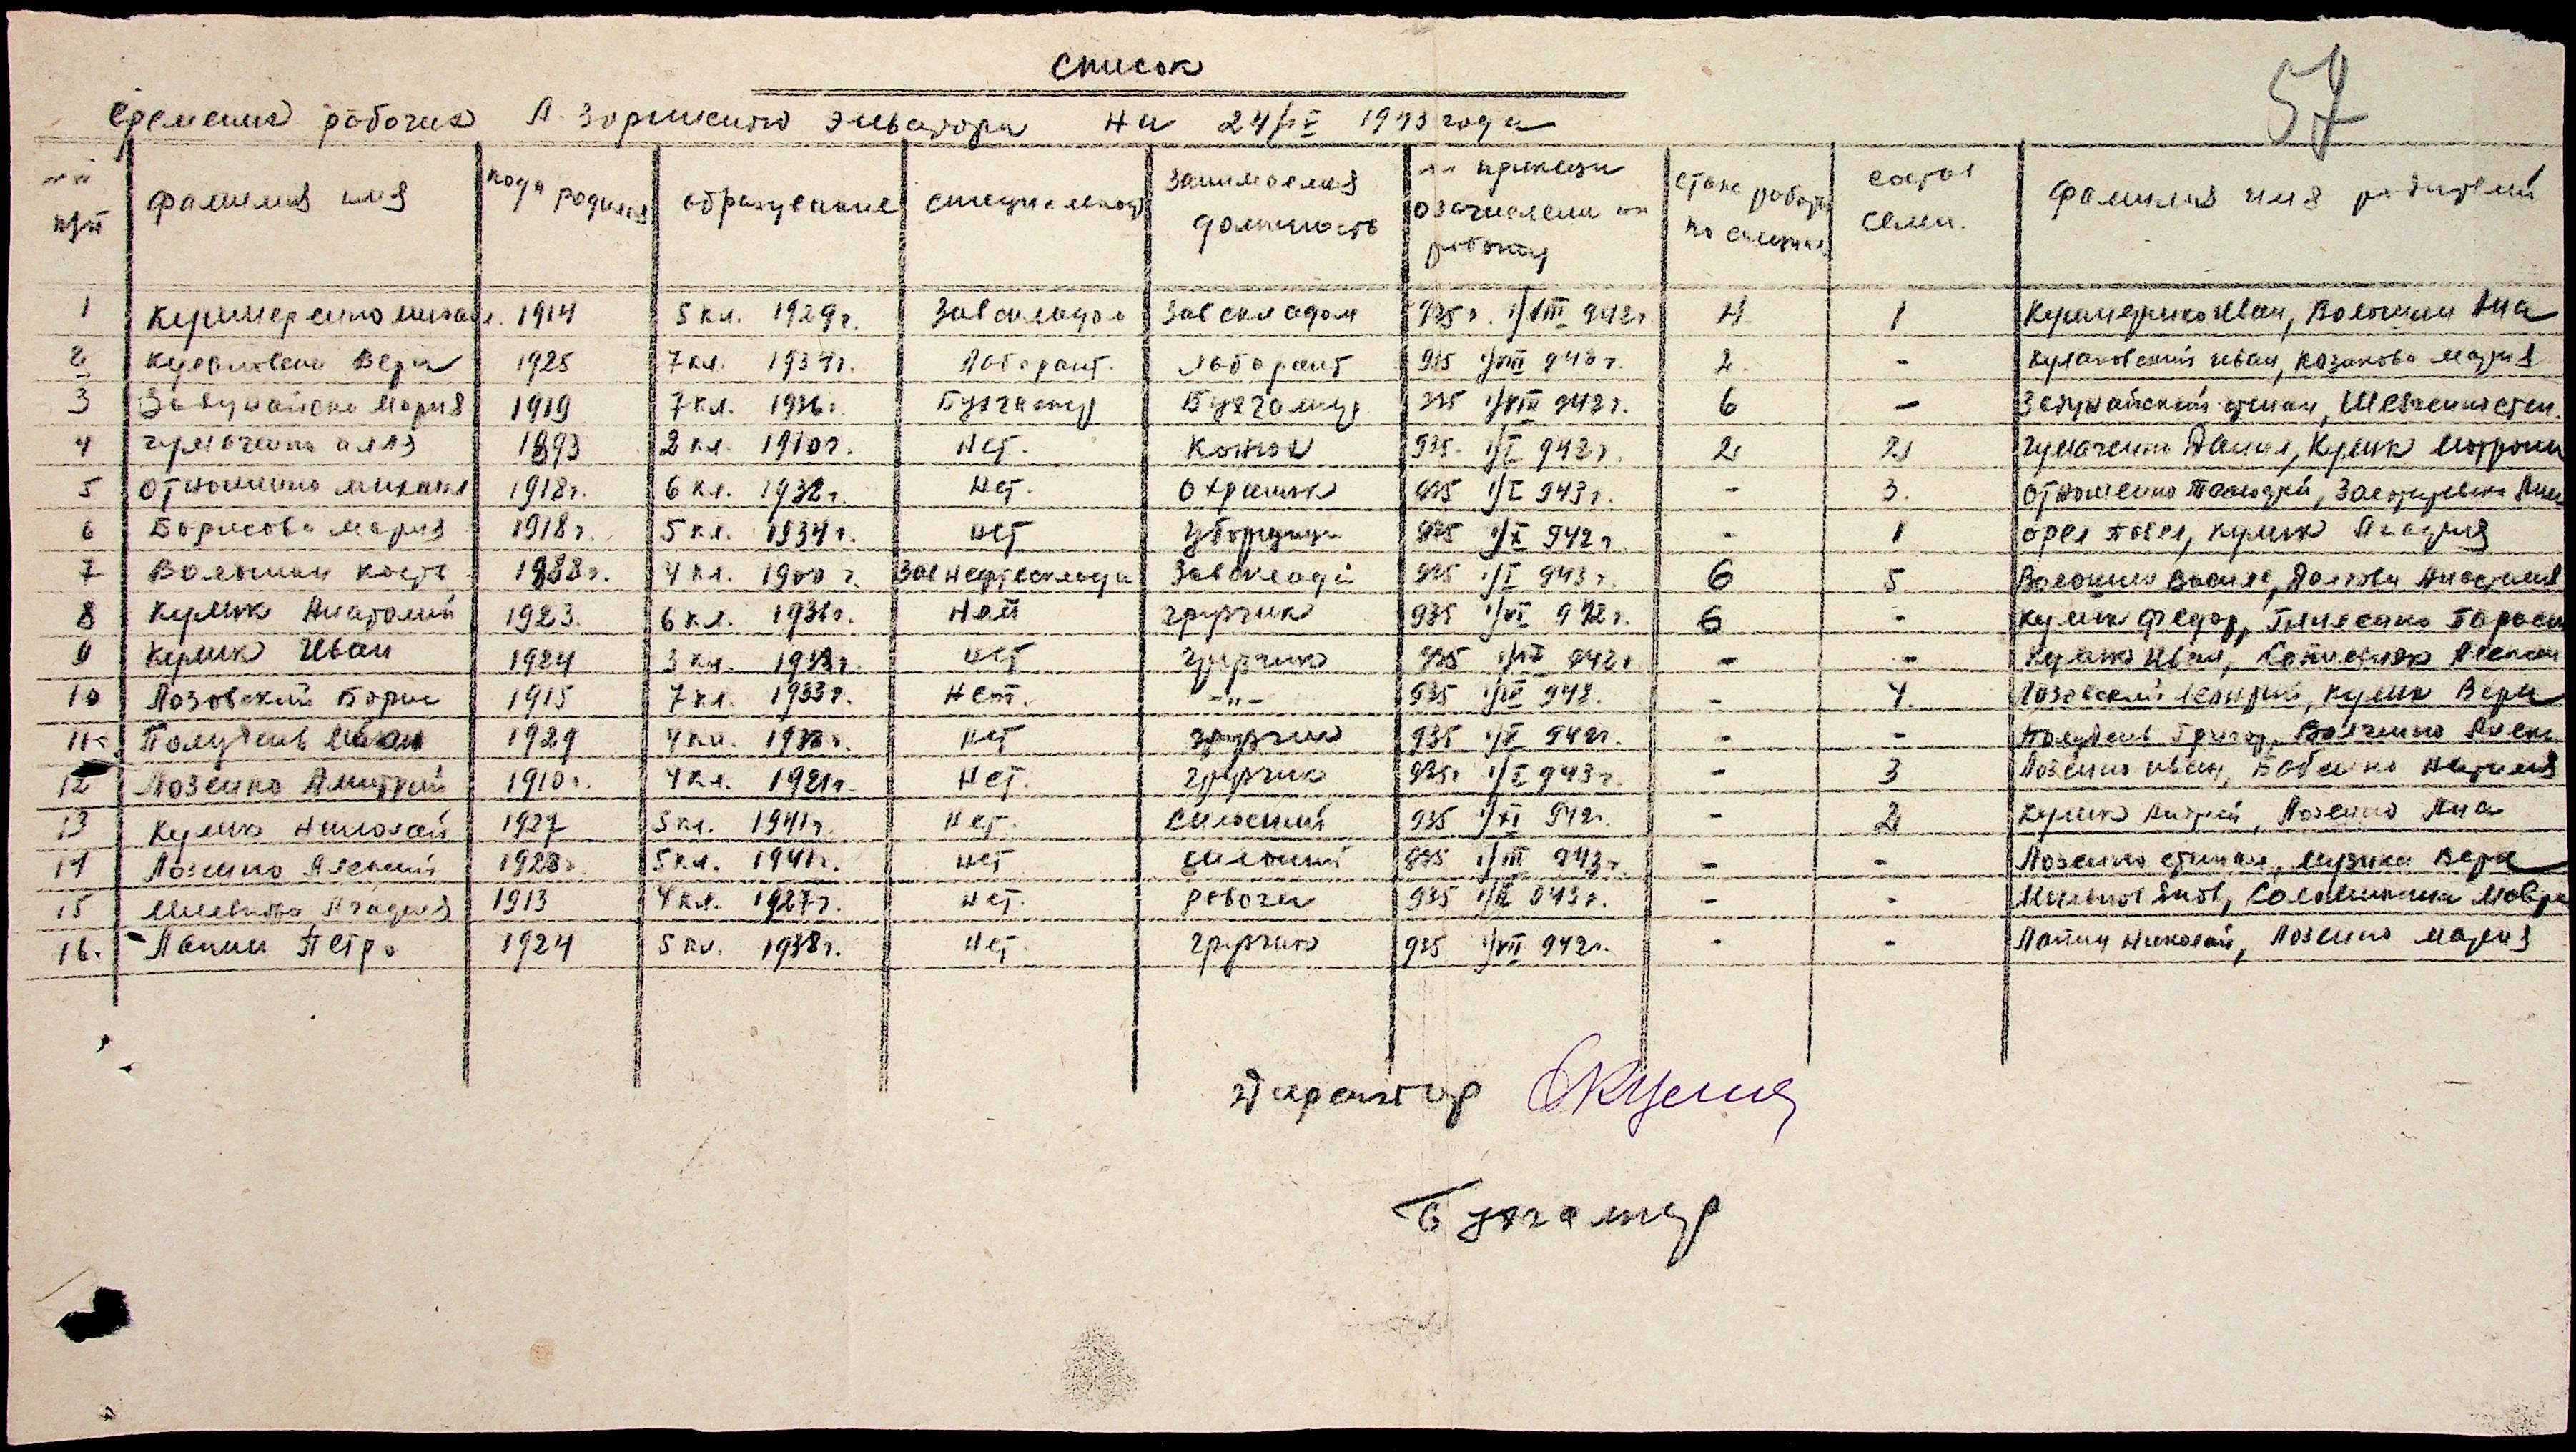 список
57
временив рабочив Л. Зоринского Элеватора на 24/IV 1943 года
№№ п/п фамилия имя года родился образование специальност занимаемая должность №№ приказа о зачислении на работу стаж работы по специал. состав семи. фамилия имя родителей
1 1914 5 кл. 1929 г. Завскладом Завскладом 935 г. 1/VIII 942 г. 4 1 Иван, Волошин Ана
2 Вера 1925 7 кл. 1939 г. Лаборант. Лаборант 935 1/VIII 943 г. 2. - Кулаковский Иван, Казакова Мария
3 Задунайска Мария 1919 7 кл. 1936 г. Бухгалтер Бухгалтер 935 1/VIII 942 г. 6 - Задунайский степан, Шевченко степ.
4 чумаченко илля 1893 2 кл. 1910 г. Нет. Конюх 935. 1/I 942 г. 2 2 Чумаченко Данил, Кулик Мотрона
5 Отношенко михаил 1918 г. 6 кл. 1932 г. Нет. Охраник 935 1/I 943 г. - 3. Отношенко
6 Борисова мария 1918 г. 5 кл. 1934 г. нет Уборщица 935 1/X 942 г. - 1 орел павел, кулик Агафия
7 Волошин кость 1888 г. 4 кл. 1900 г. Завнефтесклада Завсклада 935 1/I 943 г. 6 5 Волошин Василь, Долгова Анастасия
8 Кулик Анатолий 1923. 6 кл. 1936 г. Нет грузчик 935 1/VI 942 г. 6 - Кулик Федор, Параск
9 Кулик Иван 1924 3 кл. 1933 г. нет грузчик 935 942 г. - - Кулик Иван,
10 Лозовский Борис 1915 7 кл. 1933 г. Нет. -"- 935 1/IV 943. - 4. Лозовский, кулик Вера
11 Полудень Иван 1929 4 кл. 1938 г. нет грузчик 935 1/X 942 г. - - Полудень Григор,
12 Лозенко Дмитрий 1910 г. 4 кл. 1921 г. Нет. грузчик 935 г. 1/I 943 г. - 3 Лозенко иван, Бабенко Наталия
13 Кулик Николай 1927 5 кл. 1941 г. Нет. 935 1/XI 942 г. - 2 Кулик Андрей, Лозенко Ана
14 Лозенко Алексей 1928 г. 5 кл. 1941 г. нет 935 1/III 943 г. - - Лозенко степан, музика Вера
15 Агафия 1913 4 кл. 1927 г. нет. рабочая 935 943 г. - - Яков, Мавра
16. Лапин Петро 1924 5 кл. 1938 г. Нет грузчик 935 1/VII 942 г. - - Лапин Николай, Лозенко мария
Директор
Бухгалтер